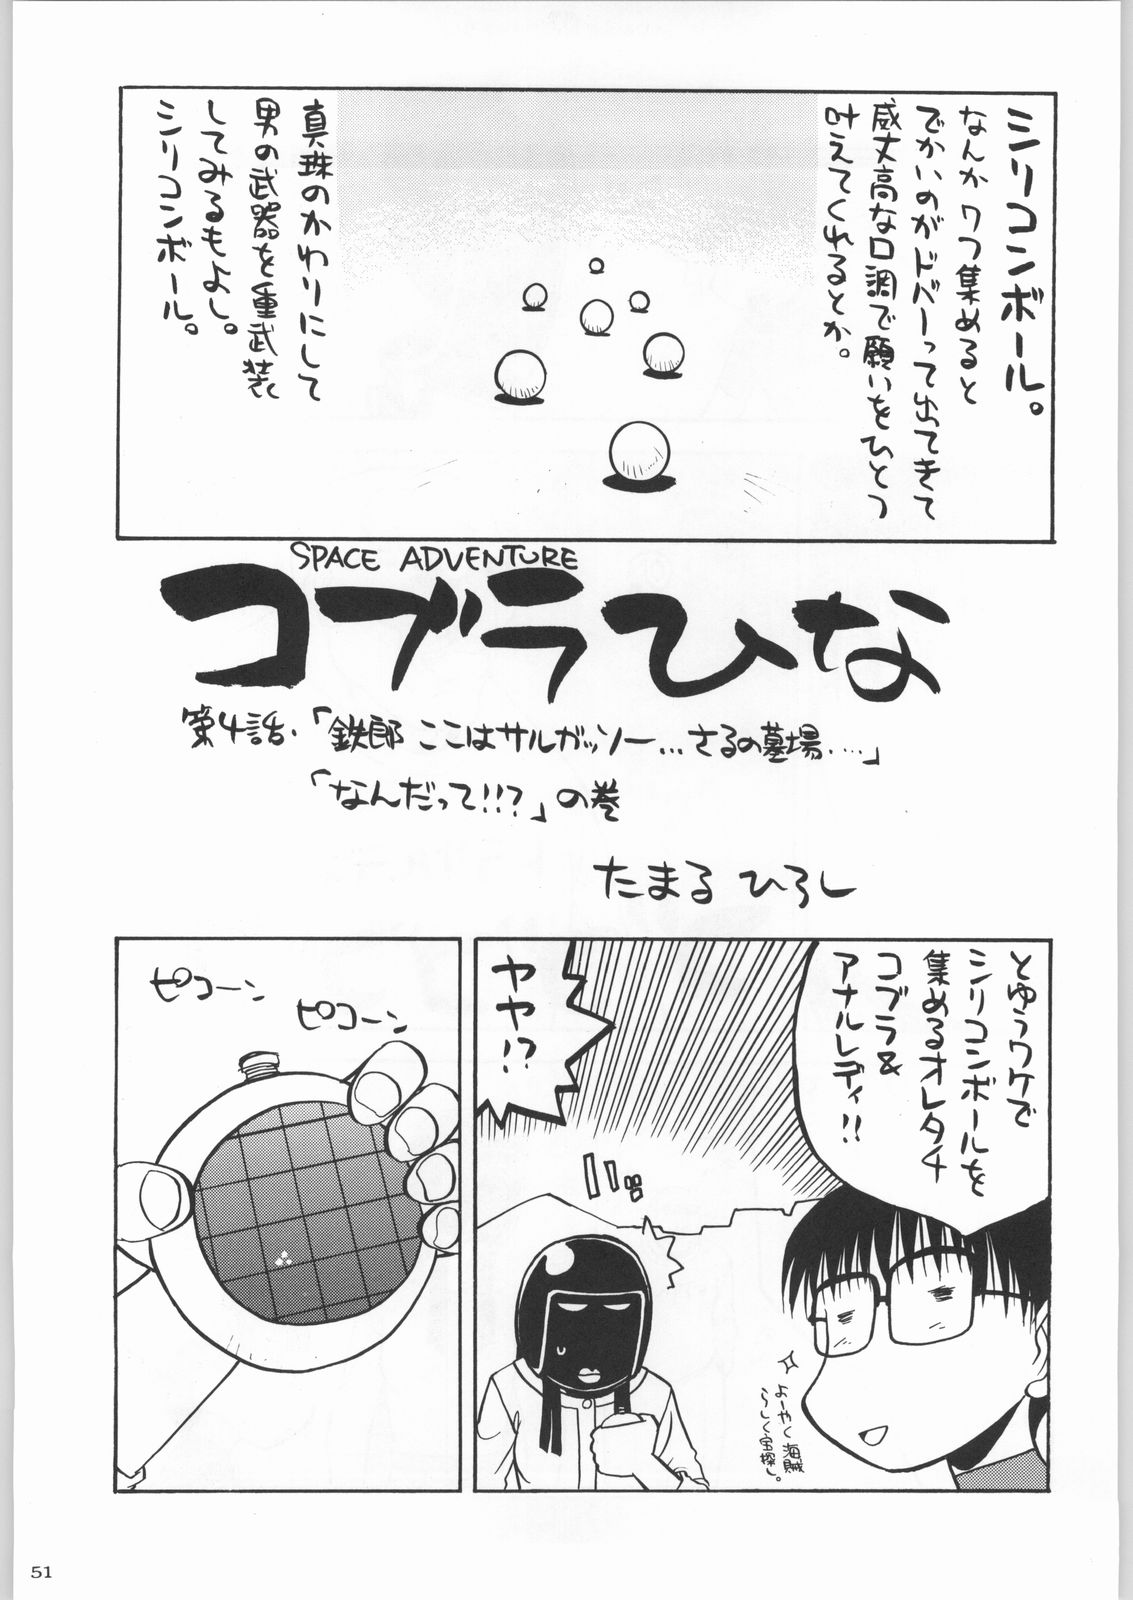 シリコンボール。
なんか 7つ集めると
でかいのがドバーって出てきて
威丈高な口調で願いをひとつ
叶えてくれるとか。
真珠のかわりにして
男の武器を重武装
してみるもよし。
シリコンボール。
SPACE ADVENTURE
コブラひな
第4話、「鉄郎 ここはサルガッソー…さるの墓場……」
「なんだって!!?」の巻
たまる ひろし
とゆうワケで
シリコンボールを
集めるオレタチ
コブラ&
アナルレディ!!
ヤヤ!?
バッ
よーやく海賊
らしく宝探し。
ピコーン
ピコーン
51